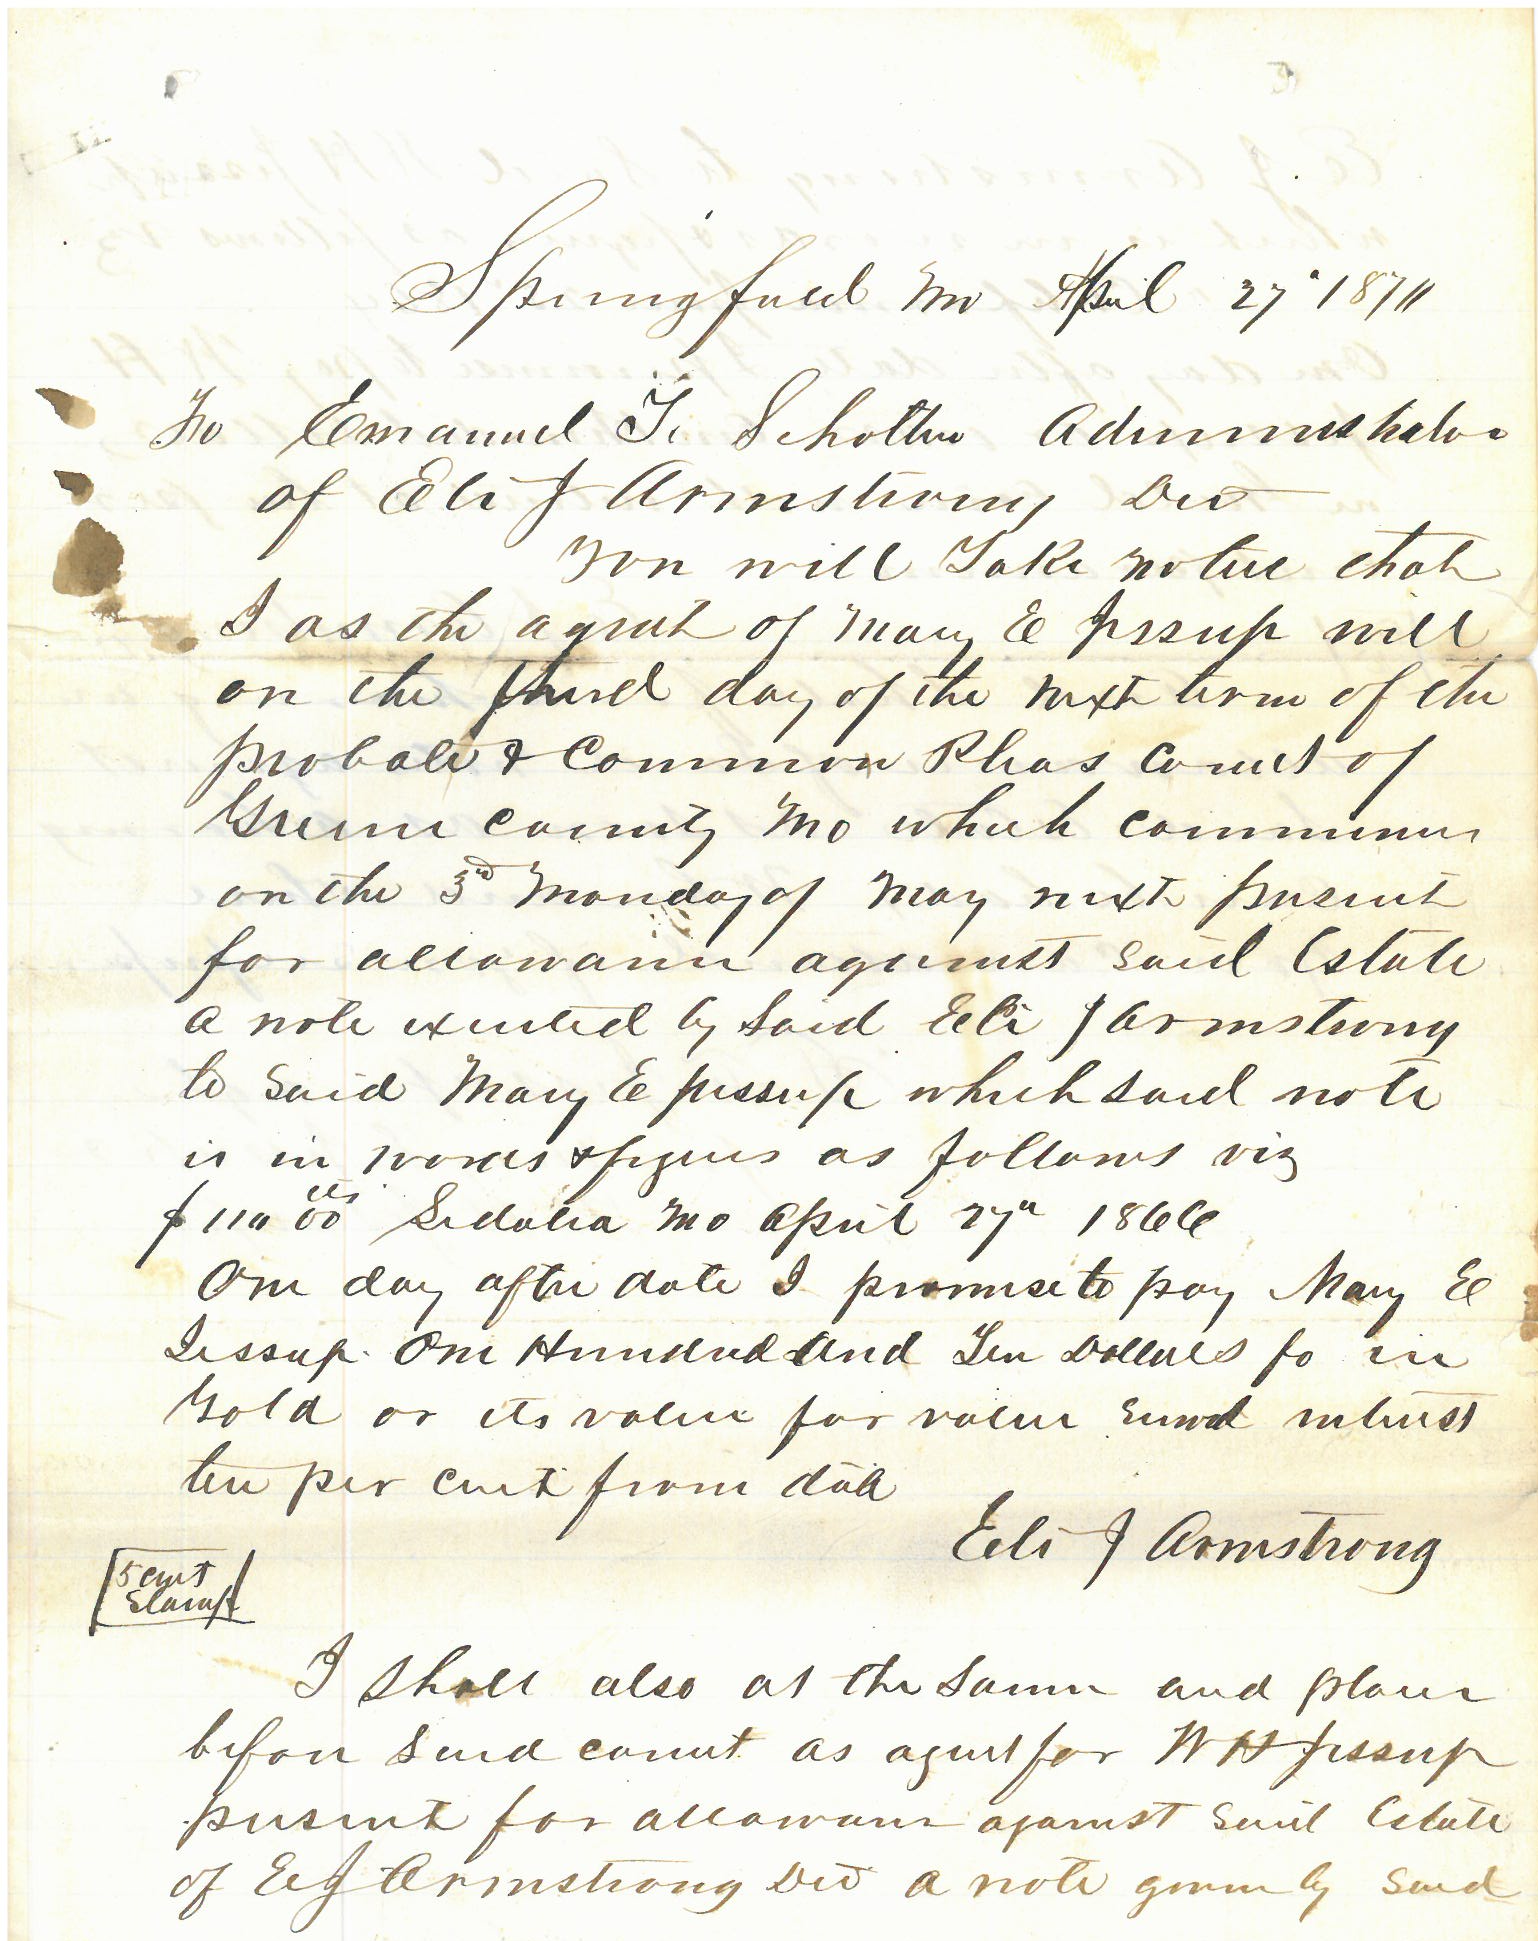 Springfield Mo April 27" 1871
To Emanuel T. Schotten Administrator
of Eli J Armstrong Decd
You will Take notice that
I as the agent of Mary E Jessup will
on the third day of the next term of the
probate & Common Pleas Court of
Greene County Mo which commences
on the 3rd Monday of May next present
for allowance against said Estate
a note executed by said Eli J Armstrong
to said Mary E Jessup which said note
is in words & figures as follows viz
$110 00 cts Sedalia Mo April 27" 1866
One day after date I promise to pay Mary E
Jessup One Hundred and Ten Dollars in
Gold or its value for value recvd interest
ten per cent from date
Eli J Armstrong
5 cent
Stamp
I shall also at the same and place
before said court as agent for W H Jessup
present for allowance against said Estate
of E J Armstrong Decd a note given by said